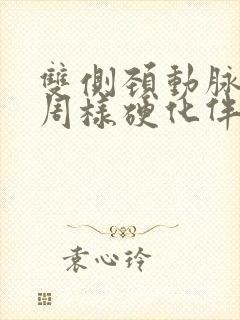 雙側頸動脈
周樣硬化伴
袁心玲